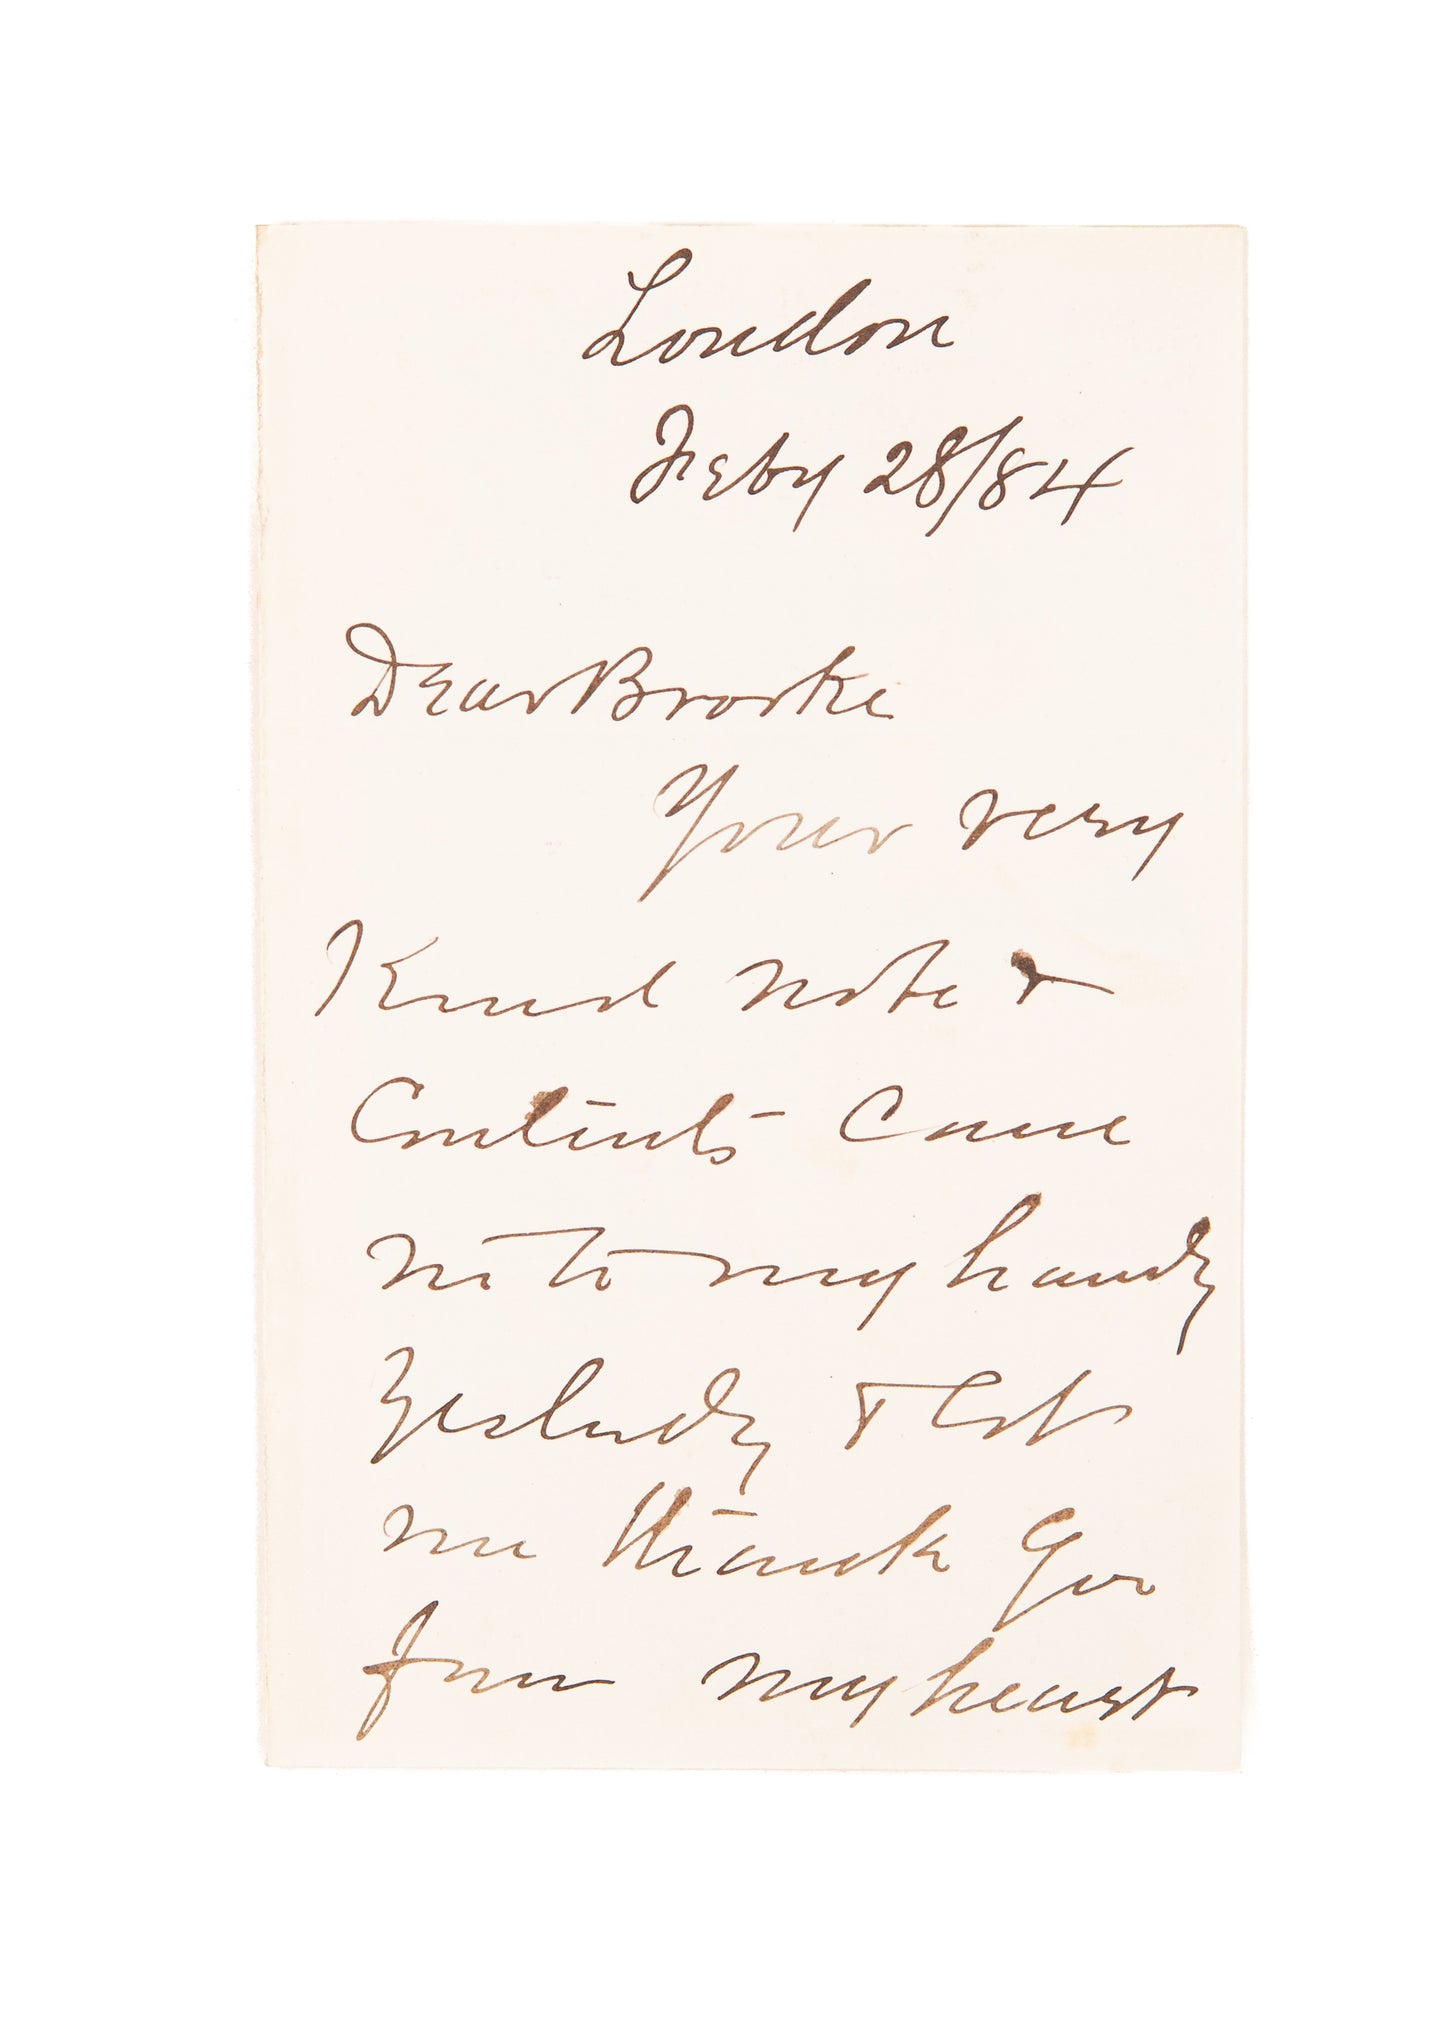 London
Feby 28/84
Dear Brooke
Your very
Kind note &
Contents came
into my hands
Yesterday & let
me thank you
from my heart